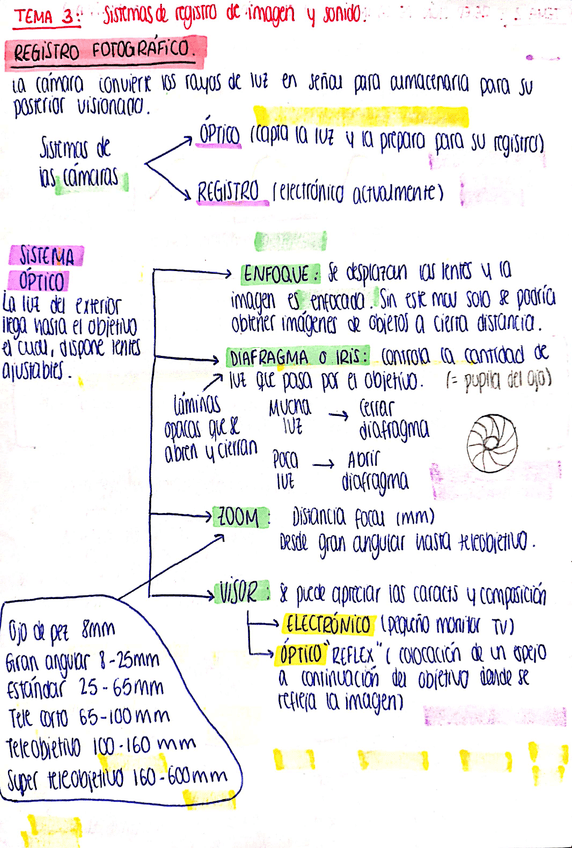 TEMA 3: Sistemas de registro de imagen y sonido.
REGISTRO FOTOGRÁFICO.
La cámara convierte los rayos de luz en señal para almacenarla para su
posterior visionado.
Sistemas de
las cámaras
ÓPTICO (capta la luz y la prepara para su registro)
REGISTRO (electrónico actualmente)
SISTEMA
ÓPTICO
La luz del exterior
llega hasta el objetivo
el cual, dispone lentes
ajustables.
ENFOQUE: Se desplazan las lentes y la
imagen es enfocada. Sin este mov solo se podría
obtener imágenes de objetos a cierta distancia.
DIAFRAGMA O IRIS: controla la cantidad de
luz que pasa por el objetivo. (= pupila del ojo)
Láminas
opacas que se
abren y cierran
Mucha
luz
Cerrar
diafragma
Poca
luz
Abrir
diafragma
ZOOM: Distancia focal (mm)
Desde gran angular hasta teleobjetivo.
VISOR: Se puede apreciar las caracts y composición
ELECTRÓNICO (pequeño monitor TV)
ÓPTICO "REFLEX" (colocación de un espejo
a continuación del objetivo donde se
refleja la imagen)
Ojo de pez 8mm
Gran angular 8-25mm
Estándar 25-65mm
Tele corto 65-100mm
Teleobjetivo 100-160 mm
Super teleobjetivo 160-600mm